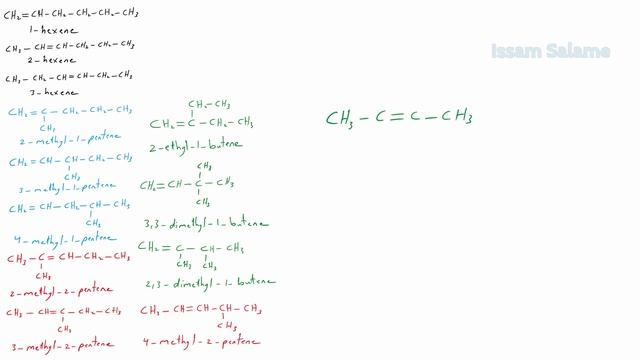 CH₂=CH-CH₂-CH₂-CH₂-CH₃
1-hexene
CH₃-CH=CH-CH₂-CH₂-CH₃
2-hexene
CH₃-CH₂-CH=CH-CH₂-CH₃
3-hexene
CH₂=C-CH₂-CH₂-CH₃
CH₃
2-methyl-1-pentene
CH₂=CH-CH-CH₂-CH₃
CH₃
3-methyl-1-pentene
CH₂=CH-CH₂-CH-CH₃
CH₃
4-methyl-1-pentene
CH₃-C=CH-CH₂-CH₃
CH₃
2-methyl-2-pentene
CH₃-CH=C-CH₂-CH₃
CH₃
3-methyl-2-pentene
CH₂-CH₃
CH₂=C-CH₂-CH₃
2-ethyl-1-butene
CH₃
CH₂=CH-C-CH₃
CH₃
3,3-dimethyl-1-butene
CH₂=C-CH-CH₃
CH₃ CH₃
2,3-dimethyl-1-butene
CH₃-CH=CH-CH-CH₃
CH₃
4-methyl-2-pentene
Issam Salame
CH₃-C=C-CH₃